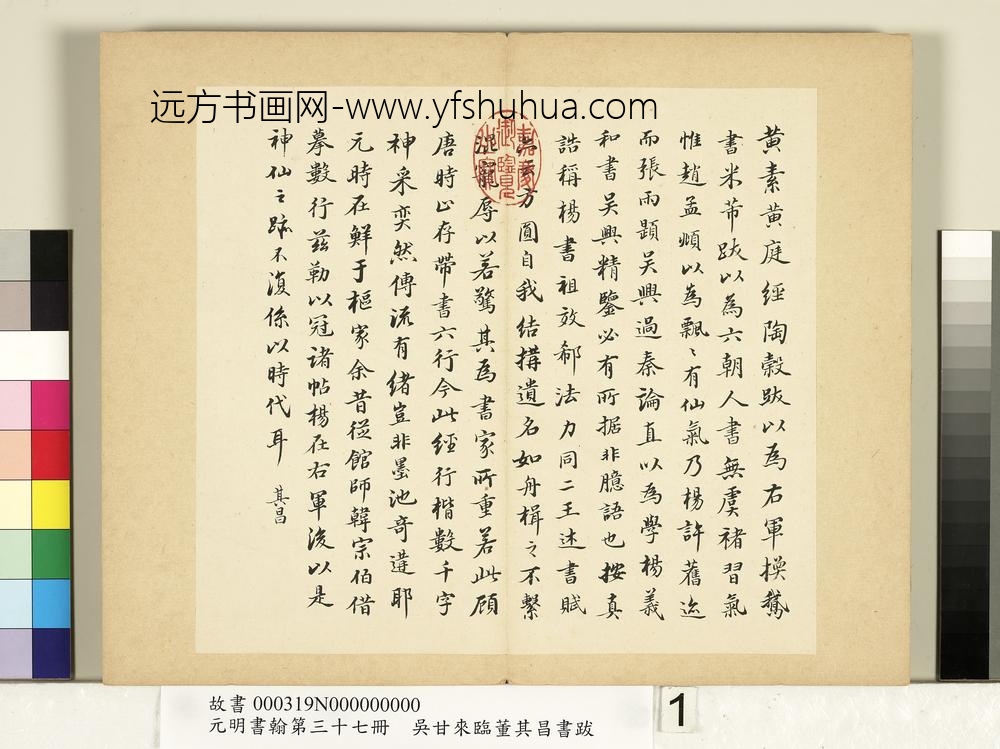 远方书画网-www.yfshuhua.com
黃素黃庭經陶穀跋以為右軍換鵝
書米芾跋以為六朝人書無虞褚習氣
惟趙孟頫以為飄〻有仙氣乃楊許舊迹
而張雨題吳興過秦論直以為學楊羲
和書吳興精鑒必有所據非臆語也按真
誥稱楊書祖效郗法力同二王述書賦
方圓自我結搆遺名如舟楫之不繫
寵辱以若驚其為書家所重若此顧
唐時止存帶書六行今此經行楷數千字
神采奕然傳流有緒豈非墨池奇遘耶
元時在鮮于樞家余昔從館師韓宗伯借
摹數行茲勒以冠諸帖楊在右軍後以是
神仙之跡不復係以時代耳 其昌
嘉慶御覽之寶
故書 000319N000000000
元明書翰第三十七冊 吳甘來臨董其昌書跋
1